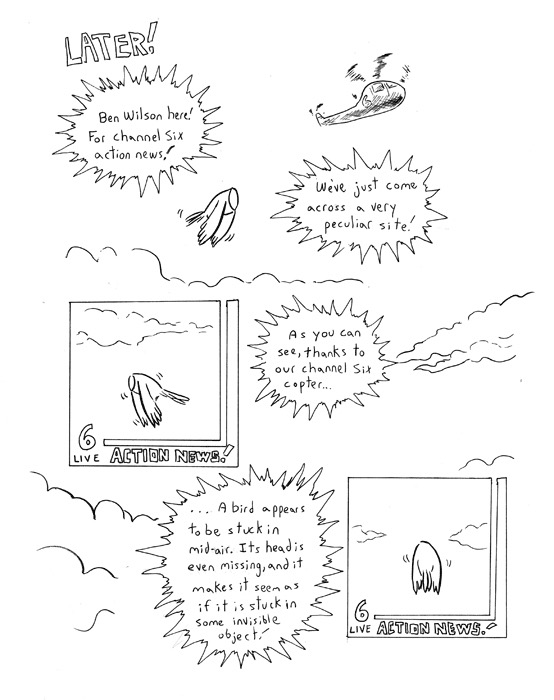 LATER!
Ben Wilson here!
For channel Six
action news!
We've just come
across a very
peculiar site!
As you can
see, thanks to
our channel Six
copter...
6
LIVE ACTION NEWS!
... A bird appears
to be stuck in
mid-air. Its head is
even missing, and it
makes it seem as
if it is stuck in
some invisible
object!
6
LIVE ACTION NEWS!